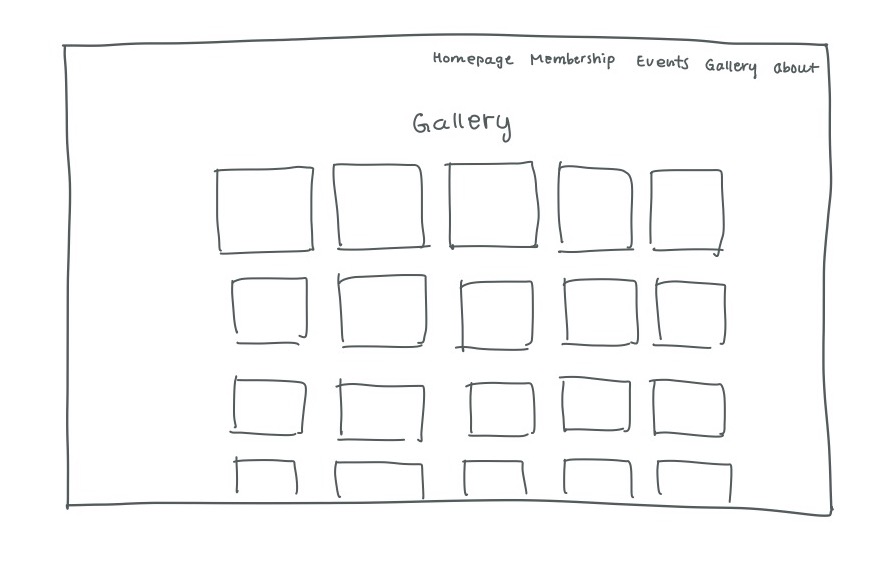 Homepage Membership Events Gallery about
Gallery